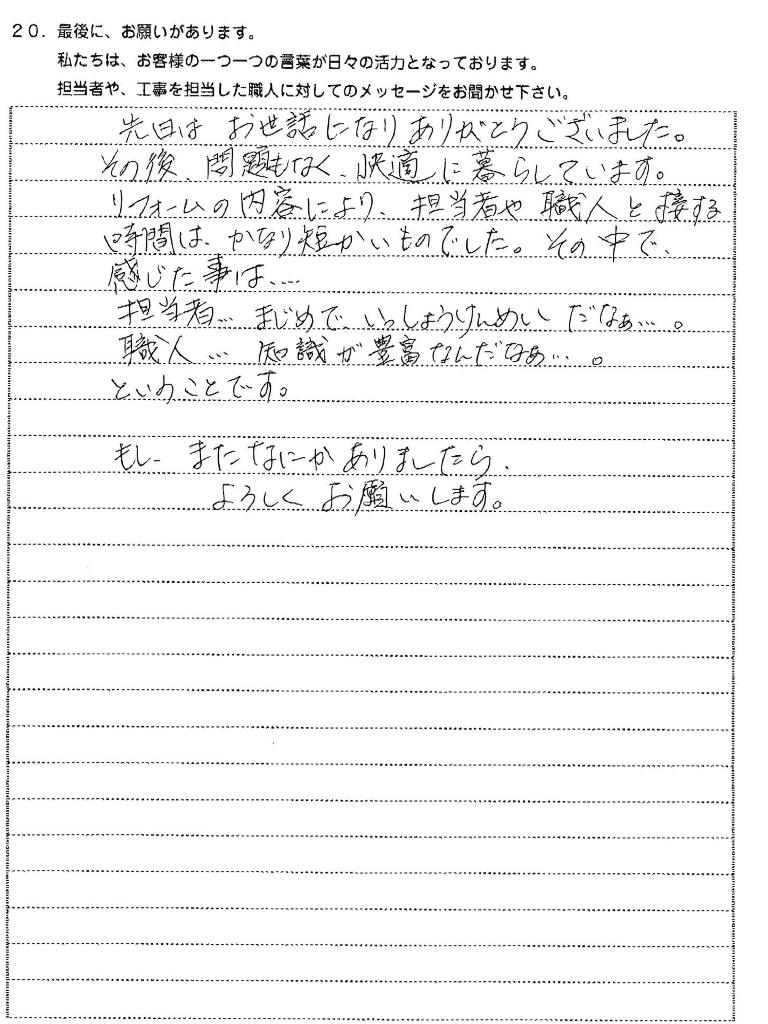 20. 最後に、お願いがあります。
私たちは、お客様の一つ一つの言葉が日々の活力となっております。
担当者や、工事を担当した職人に対してのメッセージをお聞かせ下さい。
先日は お世話になり ありがとうございました。
その後、問題もなく、快適に暮らしています。
リフォームの内容により、担当者や職人と接する
時間は、かなり短かいものでした。その中で、
感じた事は、…
担当者… まじめで、いっしょうけんめい だなぁ…。
職人… 知識が豊富なんだなぁ…。
ということです。
もし、またなにかありましたら、
よろしく お願いします。